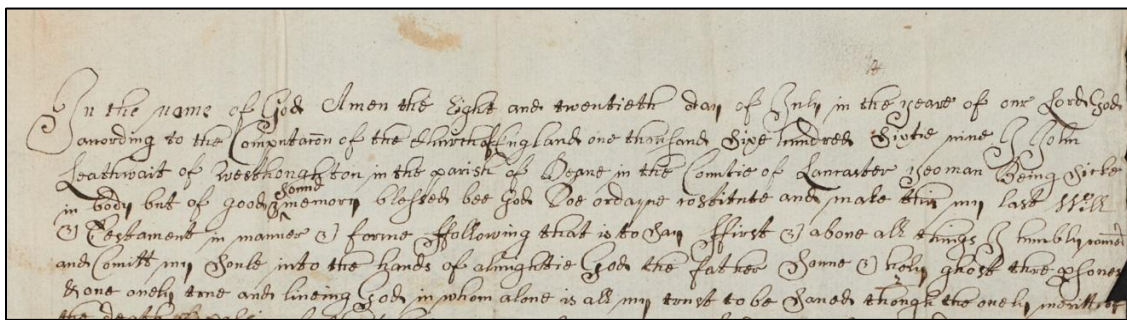 In the name of God Amen the Eight and twentieth day of July in the yeare of our Lord God
according to the Computacon of the Church of England one thousand Sixe hundred Sixtie nine I John
Leathwait of Westhoughton in the parish of Deane in the Countie of Lancaster yeoman Being Sicke
in body but of good & Sound memory blessed bee God Doe ordayne constitute and make this my last Will
& Testament in manner & forme ffollowing that is to Say ffirst & above all things I humbly
and Comitt my Soule into the hands of almightie God the father Sonne & holy ghost three psones
& one onely true and liveing God in whom alone is all my trust to be Saved though the onely meritts of
the death